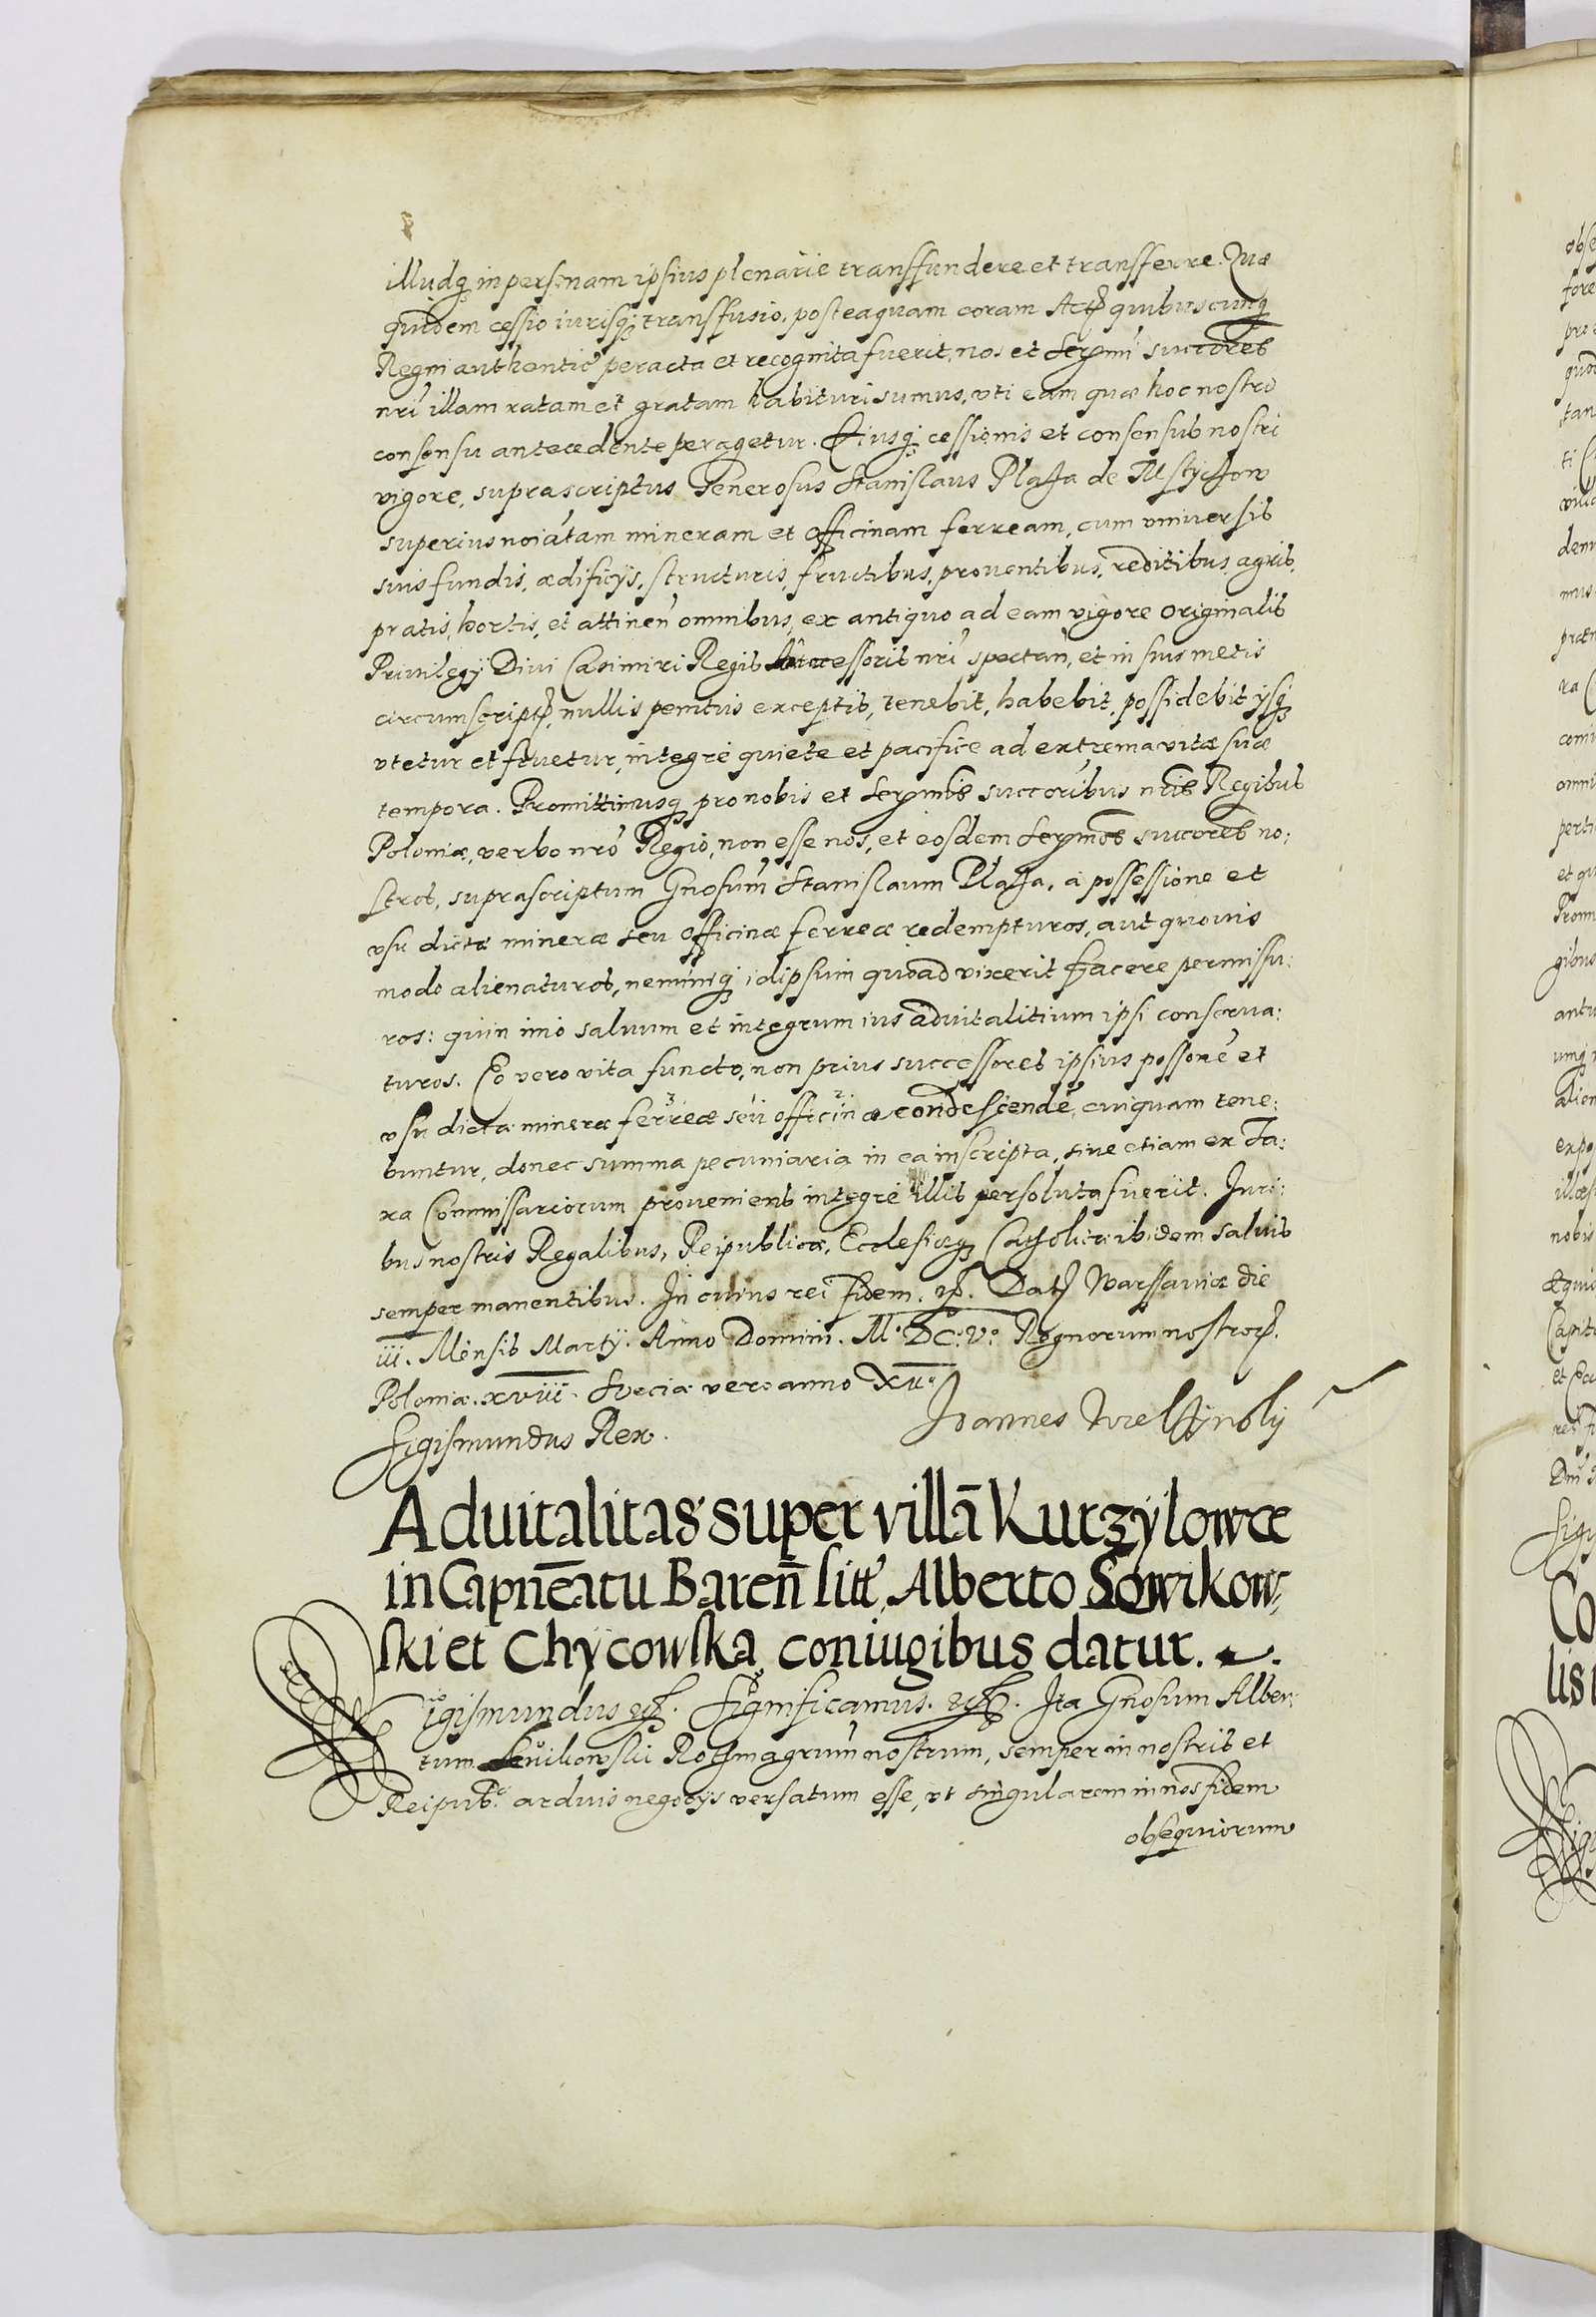 illudq in personam ipsius plenarie transfundere et transferre. Quæ
quidem cessio iurisq transfusio, posteaquam coram Actis quibuscunq
Regni authentice peracta et recognita fuerit, nos et Sermi succores
nri illam ratam et gratam habituri sumus, vti eam quæ hoc nostro
consensu antecedente peragetur. Eiusq cessionis et consensus nostri
vigore, suprascriptus Generosus Stanislaus Plaza de Mstychow
superius noiatam mineram et officinam ferream, cum vniversis
suis fundis, ædificijs, structuris, fructibus, prouentibus, reditibus, agris,
pratis, hortis, et attinen omnibus, ex antiquo ad eam vigore originalis
Priuilegij Diui Casimiri Regis Antecessoris nri spectan, et in suis metis
circumscriptis, nullis penitus exceptis, tenebit, habebit, possidebit ijsq
vtetur et fruetur, integre quiete et pacifice ad extrema vitæ suæ
tempora. Promittimusq pro nobis et Sermis succoribus nris Regibus
Poloniæ, verbo nro Regio, non esse nos, et eosdem Sermos succores no:
stros, suprascriptum Gnosum Stanislaum Plaza, a possessione et
vsu dictæ mineræ seu officinæ ferreæ redempturos, aut quouis
modo alienaturos, neminiq idipsum quoad vixerit facere permissu:
ros: quin imo saluum et integrum ius aduitalitium ipsi conserua:
turos. Eo vero vita functo, non prius successores ipsius possone et
vsu dicta mineræ ferreæ seu officinæ condescende cuiquam tene:
buntur, donec summa pecuniaria in ea inscripta, siue etiam ex Ta:
xa Commissariorum proueniens integre illis persoluta fuerit. Iuri:
bus nostris Regalibus, Reipublicæ, Ecclesiæq Catholicæ ibidem saluis
semper manentibus. In cuius rei fidem. etc. Datum Warssauiæ die
iii. Mensis Martij. Anno Domini. M.DC.V. Regnorum nostrorum.
Poloniæ. xviii. Sueciæ vero anno XII.
Sigismundus Rex. Joannes Wielzynsky
Aduitalitas super villā Kurzylowce
in Capnēatu Baren sitt, Alberto Sowikow:
ski et Chycowska coniugibus datur.
Sigismundus etc. Significamus. etc. Ita Gnosum Alber:
tum Sevikowski Rothmagrum nostrum, semper in nostris et
Reipub. arduis negocijs versatum esse, vt singularem in nos fidem
obsequiorum